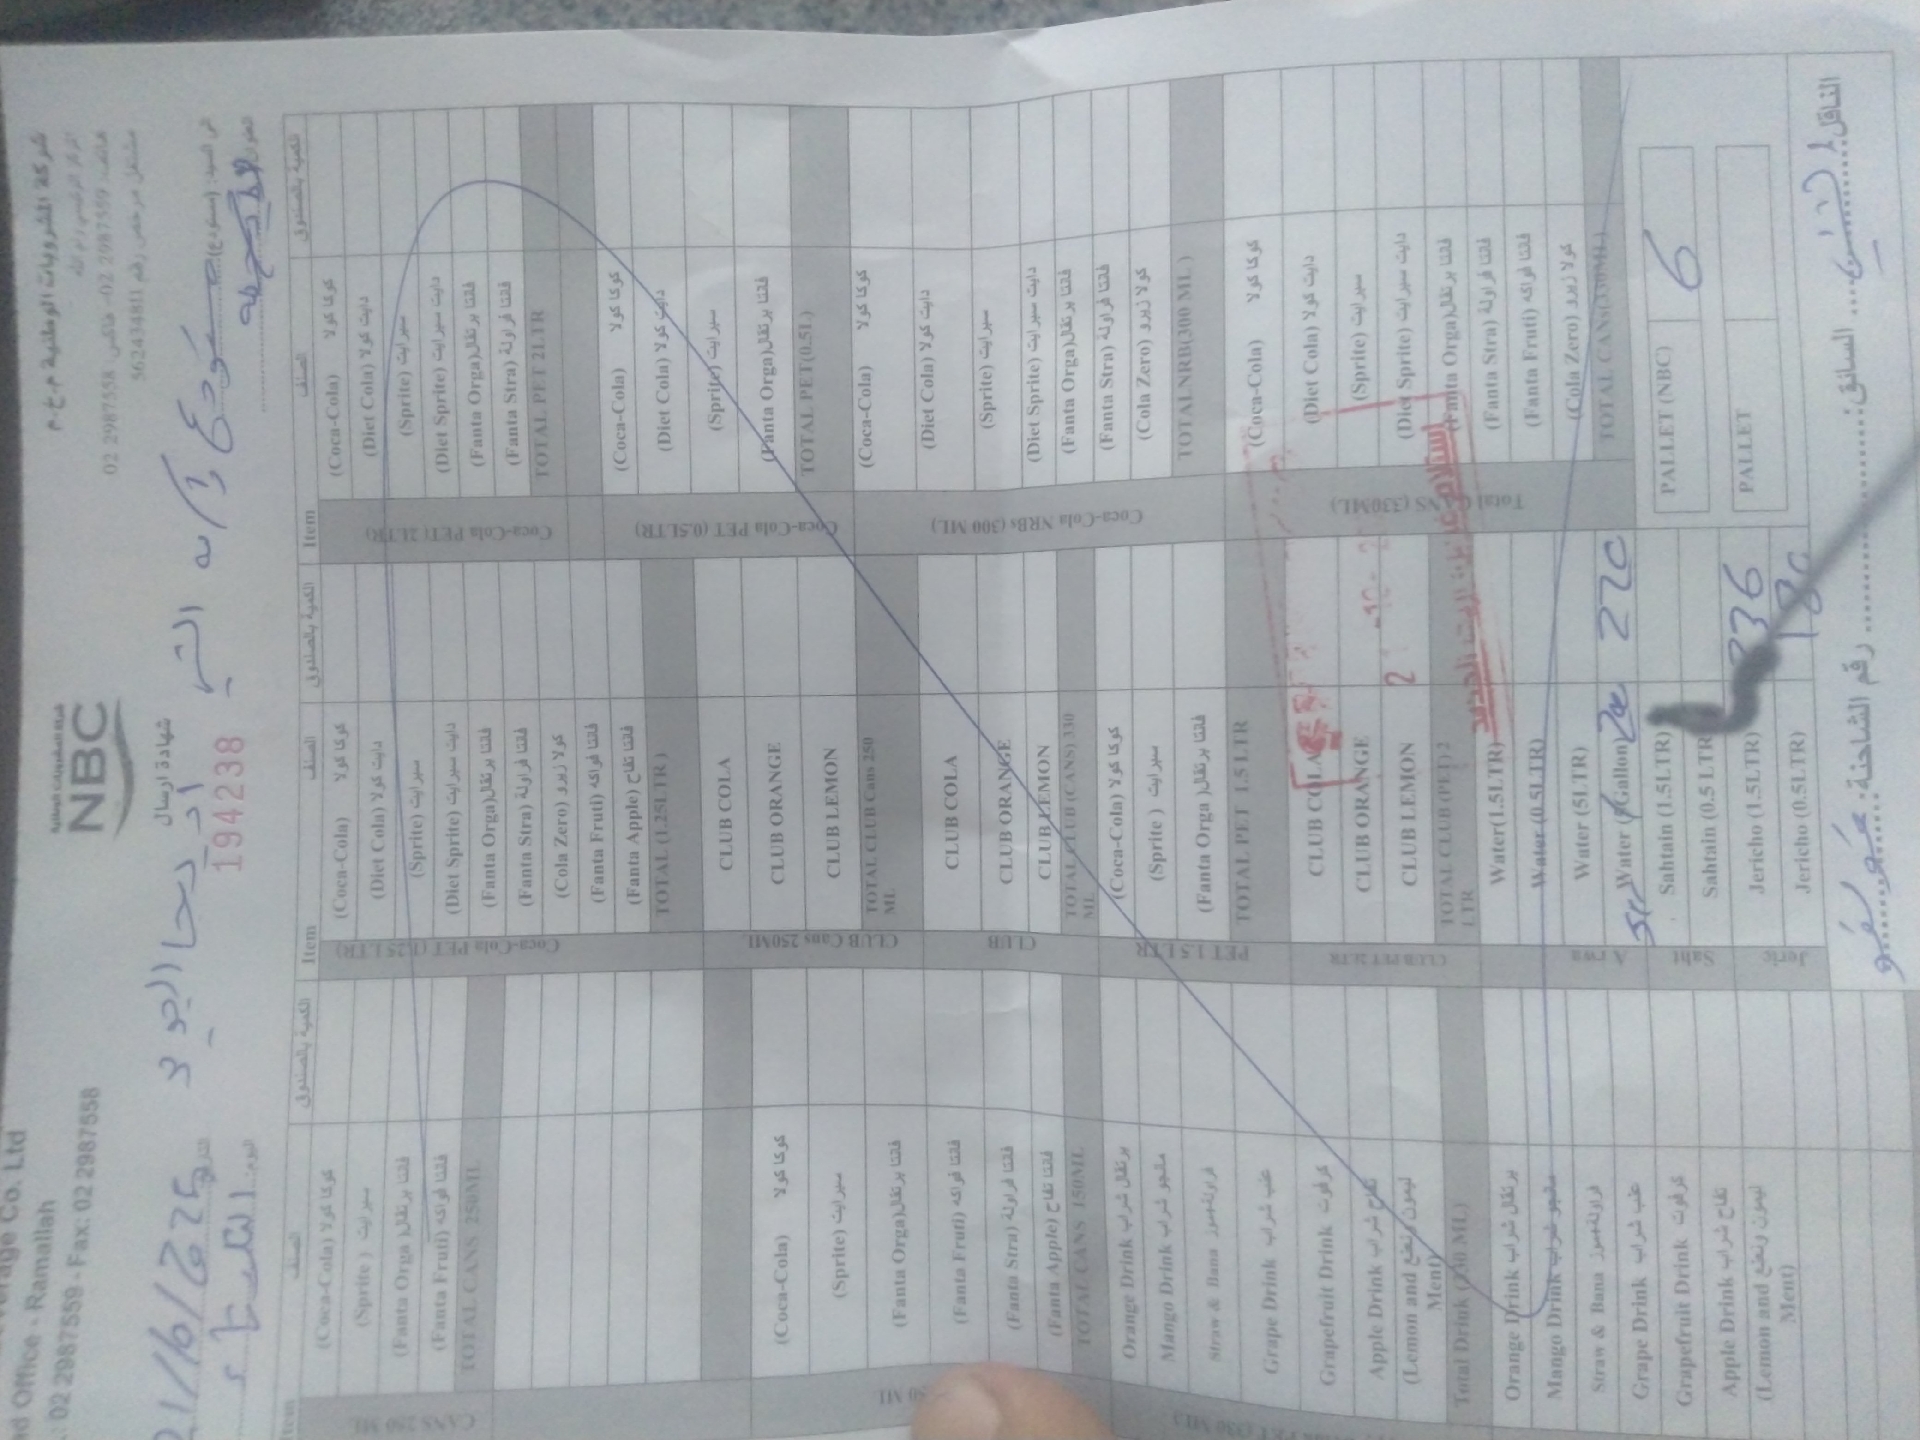 شركة المشروبات الوطنية م.خ.م
المركز الرئيسي رام الله
هاتف: 2987559 02- فاكس 2987558 02
مشتغل مرخص رقم 562434811
شركة المشروبات الوطنية
NBC
شهادة ارسال
194238
erage Co. Ltd
ad Office - Ramallah
: 02 2987559 - Fax: 02 2987558
الى السيد:
اليوم:
Item الصنف الكمية بالصندوق Item الصنف الكمية بالصندوق Item الصنف الكمية بالصندوق
CANS 250 ML
(Coca-Cola) كوكا كولا
(Sprite ) سبرايت
(Fanta Orga) فانتا برتقال
(Fanta Fruti) فانتا فواكه
TOTAL CANS 250ML
(Coca-Cola) كوكا كولا
(Sprite) سبرايت
(Fanta Orga) فانتا برتقال
(Fanta Fruti) فانتا فواكه
(Fanta Stra) فانتا فراولة
(Fanta Apple) فانتا تفاح
TOTAL CANS 150ML
Orange Drink برتقال شراب
Mango Drink مانجو شراب
Straw & Bana فراولة+موز
Grape Drink عنب شراب
Grapefruit Drink كرفوت
Apple Drink تفاح شراب
(Lemon and ليمون ونعنع
Ment)
Total Drink (330 ML)
Orange Drink برتقال شراب
Mango Drink مانجو شراب
Straw & Bana فراولة+موز
Grape Drink عنب شراب
Grapefruit Drink كرفوت
Apple Drink تفاح شراب
(Lemon and ليمون ونعنع
Ment)
Coca-Cola PET (1.25 LTR)
(Coca-Cola) كوكا كولا
(Diet Cola) دايت كولا
(Sprite) سبرايت
(Diet Sprite) دايت سبرايت
(Fanta Orga) فانتا برتقال
(Fanta Stra) فانتا فراولة
(Cola Zero) كولا زيرو
(Fanta Fruti) فانتا فواكه
(Fanta Apple) فانتا تفاح
TOTAL (1.25LTR )
CLUB Cans 250ML
CLUB COLA
CLUB ORANGE
CLUB LEMON
TOTAL CLUB Cans 250
ML
CLUB
CLUB COLA
CLUB ORANGE
CLUB LEMON
TOTAL CLUB (CANS) 330
ML
PET 1.5 LTR
(Coca-Cola) كوكا كولا
(Sprite ) سبرايت
(Fanta Orga ) فانتا برتقال
TOTAL PET 1.5 LTR
CLUB PET 2LTR
CLUB COLA
CLUB ORANGE
CLUB LEMON
TOTAL CLUB (PET) 2
LTR
Arwa
Water(1.5LTR)
Water (0.5LTR)
Water (5LTR)
Water (Gallon) 270
Saht
Sahtain (1.5LTR)
Sahtain (0.5 LTR)
Jeric
Jericho (1.5LTR) 336
Jericho (0.5LTR) 180
Coca-Cola PET( 2LTR)
(Coca-Cola) كوكا كولا
(Diet Cola) دايت كولا
(Sprite) سبرايت
(Diet Sprite) دايت سبرايت
(Fanta Orga) فانتا برتقال
(Fanta Stra) فانتا فراولة
TOTAL PET 2LTR
Coca-Cola PET (0.5LTR)
(Coca-Cola) كوكا كولا
(Diet Cola) دايت كولا
(Sprite) سبرايت
(Fanta Orga) فانتا برتقال
TOTAL PET(0.5L)
Coca-Cola NRBs (300 ML)
(Coca-Cola) كوكا كولا
(Diet Cola) دايت كولا
(Sprite) سبرايت
(Diet Sprite) دايت سبرايت
(Fanta Orga) فانتا برتقال
(Fanta Stra) فانتا فراولة
(Cola Zero) كولا زيرو
TOTALNRB(300 ML )
Total CANS (330ML)
(Coca-Cola) كوكا كولا
(Diet Cola) دايت كولا
(Sprite) سبرايت
(Diet Sprite) دايت سبرايت
(Fanta Orga) فانتا برتقال
(Fanta Stra) فانتا فراولة
(Fanta Fruti) فانتا فواكه
(Cola Zero) كولا زيرو
TOTAL CANs(330ML)
PALLET (NBC) 6
PALLET
رقم الشاحنة: السائق: الناقل